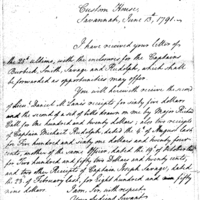 Custom House
Savannah, June 13th, 1791.
I have received your letter of
the 23d ultimo, with the enclosures for the Captains
Burbeck, Smith, Savage and Rudolph, which shall
be forwarded as opportunities may offer.
You will herewith receive the
of Daniel M. receipts for sixty five dollars
and the second of a set of bills drawn on me by Major Richd
Call for One hundred and twenty dollars; also two receipts
of Captain Michael Rudolph, dated the 4th of August last
for Five hundred and sixty one dollars and twenty four
cents, another of the same Officer, dated the 19th of
for Five hundred and fifty One Dollars and twenty cents,
and two other Receipts of Captain Joseph Savage, dated
the 23d of February last, for Eight hundred and fifty
nine dollars.
I am, Sir, with respect,
Your Obedient Servant